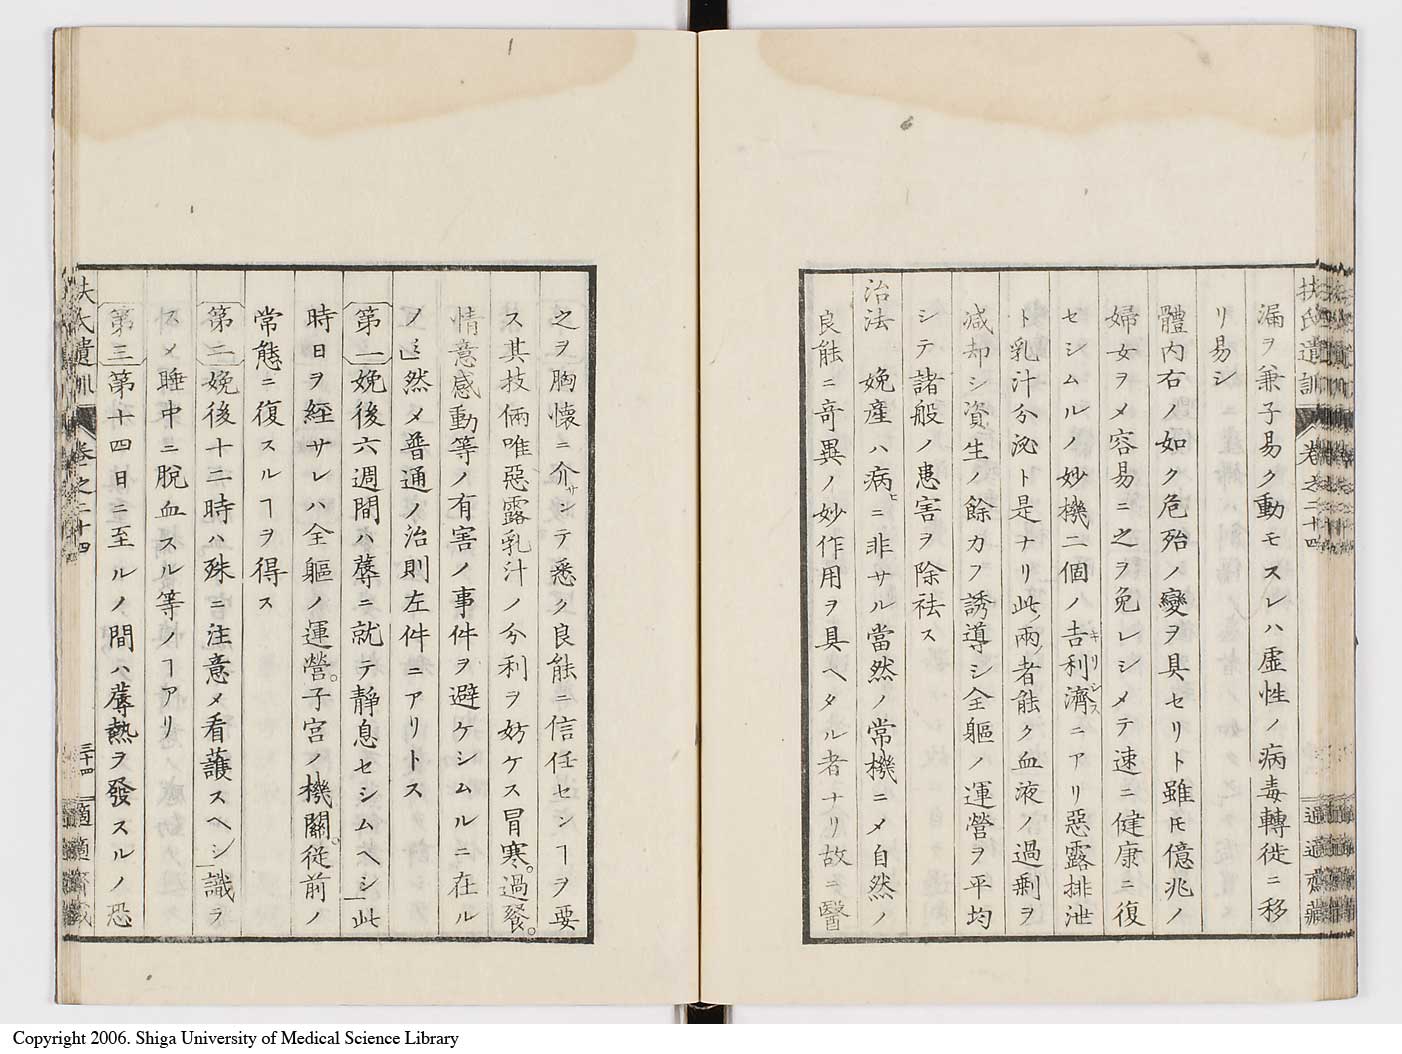 扶氏遺訓 卷之二十四 適適齋藏
漏ヲ兼子易ク動モスレハ虚性ノ病毒轉徙ニ移
リ易シ
體内右ノ如ク危殆ノ變ヲ具セリト雖𪜈億兆ノ
婦女ヲメ容易ニ之ヲ免レシメテ速ニ健康ニ復
セシムルノ妙機二個ノ吉利濟キリシスニアリ惡露排泄
ト乳汁分泌ト是ナリ此兩者能ク血液ノ過剩ヲ
減却シ資生ノ餘力ヲ誘導シ全軀ノ運營ヲ平均
シテ諸般ノ患害ヲ除祛ス
治法 娩産ハ病ニ非サル當然ノ常機ニメ自然ノ
良能ニ奇異ノ妙作用ヲ具ヘタル者ナリ故ニ醫
之ヲ胸懷ニ介サンテ悉ク良能ニ信任センヿヲ要
ス其技倆唯惡露乳汁ノ分利ヲ妨ケス冒寒。過餐。
情意感動等ノ有害ノ事件ヲ避ケシムルニ在ル
ノミ然メ普通ノ治則左件ニアリトス
第一 娩後六週間ハ蓐ニ就テ靜息セシムヘシ此
時日ヲ經サレハ全軀ノ運營。子宮ノ機關。從前ノ
常態ニ復スルヿヲ得ス
第二 娩後十二時ハ殊ニ注意メ看護スヘシ識ラ
スメ睡中ニ脱血スル等ノヿアリ
第三 第十四日ニ至ルノ間ハ蓐熱ヲ發スルノ恐
扶氏遺訓 卷之二十四 三十四 適適齋藏
Copyright 2006. Shiga University of Medical Science Library